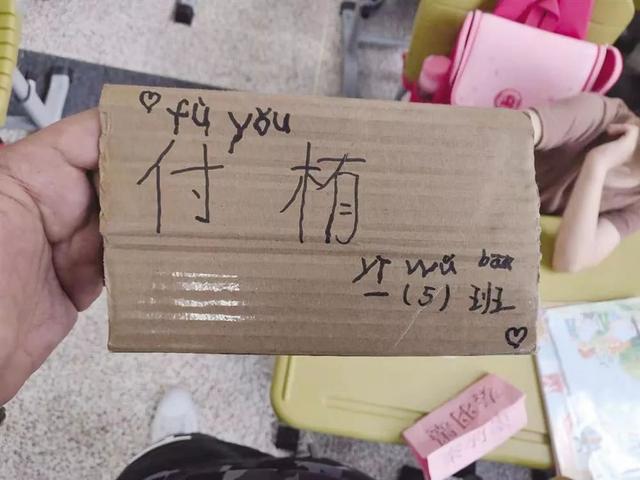 ♡ fù yǒu
付 栯
yī wǔ bān
一(5)班
♡